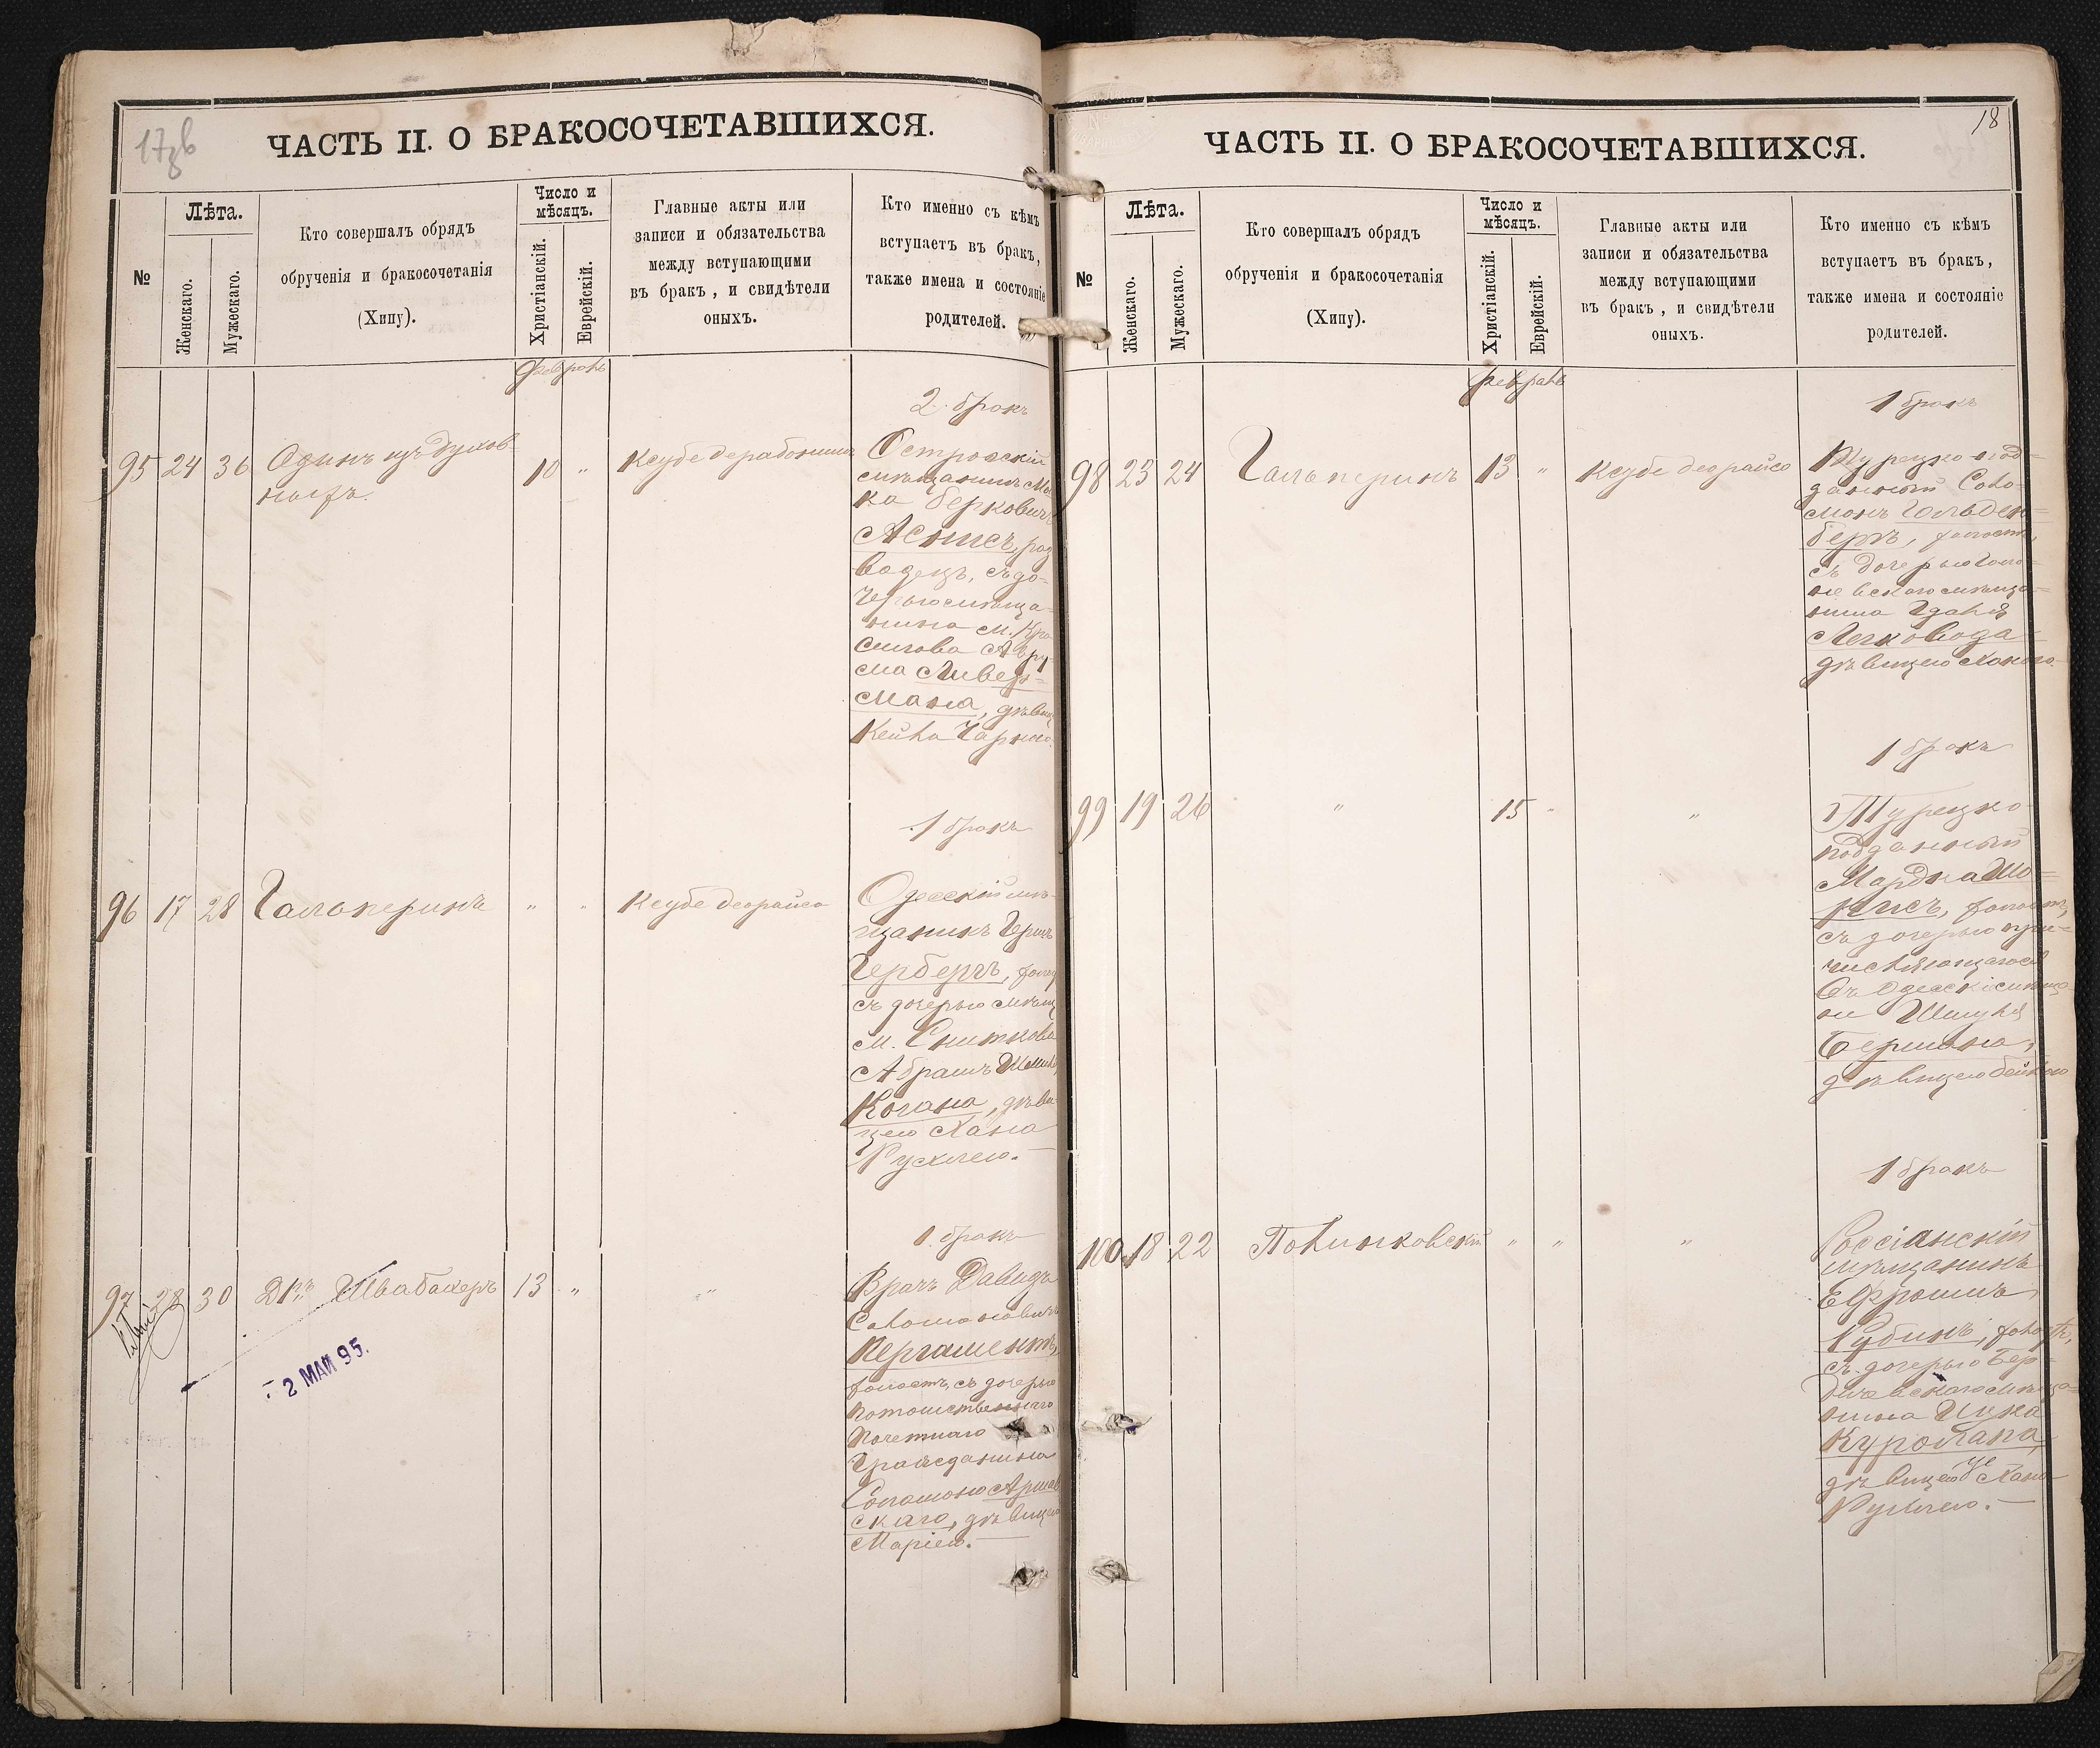 17зв
ЧАСТЬ II. О БРАКОСОЧЕТАВШИХСЯ.
№
Лѣта.
Женскаго.
Мужескаго.
Кто совершалъ обрядъ
обрученія и бракосочетанія
(Хипу).
Число и
мѣсяцъ.
Христіанскій.
Еврейскій.
Главные акты или
записи и обязательства
между вступающими
въ бракъ, и свидѣтели
оныхъ.
Кто именно съ кѣмъ
вступаетъ въ бракъ,
также имена и состояніе
родителей.
Февраль
2 бракъ
95 24 36 Одинъ изъ духов-
ныхъ. 10 „ Ксубе дерабонинъ
Островскій
мѣщанинъ
ка Берковичъ
Аснисъ, раз
водецъ, съ до-
черью мѣща-
нина м. Кра
силова Авру
ма Ливер-
мана, дѣвиц
Кейла Чарною
1 бракъ
96 17 28 Гальперинъ „ „ Ксубе деорайсо
Одесскій мѣ-
щанинъ Герш
Герберъ, холос
съ дочерью мѣщ
м. Сниткова
Абрамъ
Когана, дѣви-
цею Хана
Рухлею.
1 бракъ
97 28 30 Д-ръ Швабахеръ 13 „ „
2 МАЙ 95.
Врачъ Давидъ
Соломоновичъ
Пергаментъ,
холостъ, съ дочерью
потомственнаго
почетнаго
гражданина
Соломона
скаго, дѣвицею
Маріею.
18
ЧАСТЬ II. О БРАКОСОЧЕТАВШИХСЯ.
№
Лѣта.
Женскаго.
Мужескаго.
Кто совершалъ обрядъ
обрученія и бракосочетанія
(Хипу).
Число и
мѣсяцъ.
Христіанскій.
Еврейскій.
Главные акты или
записи и обязательства
между вступающими
въ бракъ, и свидѣтели
оныхъ.
Кто именно съ кѣмъ
вступаетъ въ бракъ,
также имена и состояніе
родителей.
Февраль
1 бракъ
98 23 24 Гальперинъ 13 „ Ксубе деорайсо
Турецко-под-
данный Соло-
монъ Гольден-
бергъ, холостъ,
съ дочерью
невскаго мѣща-
нина Гдаля
Легковода
дѣвицею
1 бракъ
99 19 26 „ 15 „ „
Турецко-
подданный
Мардка
съ дочерью при-
числяющагося
въ Одесскіе мѣща-
не Шмуля
Бермана,
дѣвицею Бейлою
1 бракъ
100 18 22 Полинковскій „ „ „
Россіанскій
мѣщанинъ
Ефроимъ
Рубинъ, холостъ,
съ дочерью Бер-
дичевскаго мѣща-
нина Ицка
дѣвицею Хана
Рухлею.